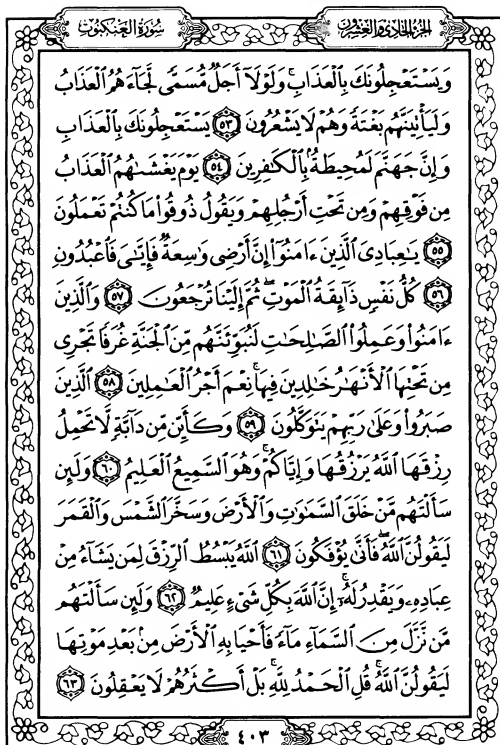 سُورَةُ الْعَنكَبُوتِ
الجُزْءُ الحَادِي وَالعِشْرُونَ
وَيَسْتَعْجِلُونَكَ بِالْعَذَابِ ۚ وَلَوْلَا أَجَلٌ مُّسَمًّى لَّجَاءَهُمُ الْعَذَابُ
وَلَيَأْتِيَنَّهُم بَغْتَةً وَهُمْ لَا يَشْعُرُونَ ٥٣ يَسْتَعْجِلُونَكَ بِالْعَذَابِ
وَإِنَّ جَهَنَّمَ لَمُحِيطَةٌ بِالْكَافِرِينَ ٥٤ يَوْمَ يَغْشَاهُمُ الْعَذَابُ
مِن فَوْقِهِمْ وَمِن تَحْتِ أَرْجُلِهِمْ وَيَقُولُ ذُوقُوا مَا كُنتُمْ تَعْمَلُونَ
٥٥ يَاعِبَادِيَ الَّذِينَ ءَامَنُوا إِنَّ أَرْضِي وَاسِعَةٌ فَإِيَّايَ فَاعْبُدُونِ
٥٦ كُلُّ نَفْسٍ ذَائِقَةُ الْمَوْتِ ۖ ثُمَّ إِلَيْنَا تُرْجَعُونَ ٥٧ وَالَّذِينَ
ءَامَنُوا وَعَمِلُوا الصَّالِحَاتِ لَنُبَوِّئَنَّهُم مِّنَ الْجَنَّةِ غُرَفًا تَجْرِي
مِن تَحْتِهَا الْأَنْهَارُ خَالِدِينَ فِيهَا ۚ نِعْمَ أَجْرُ الْعَامِلِينَ ٥٨ الَّذِينَ
صَبَرُوا وَعَلَىٰ رَبِّهِمْ يَتَوَكَّلُونَ ٥٩ وَكَأَيِّن مِّن دَابَّةٍ لَّا تَحْمِلُ
رِزْقَهَا اللَّهُ يَرْزُقُهَا وَإِيَّاكُمْ ۚ وَهُوَ السَّمِيعُ الْعَلِيمُ ٦٠ وَلَئِن
سَأَلْتَهُم مَّنْ خَلَقَ السَّمَاوَاتِ وَالْأَرْضَ وَسَخَّرَ الشَّمْسَ وَالْقَمَرَ
لَيَقُولُنَّ اللَّهُ ۖ فَأَنَّىٰ يُؤْفَكُونَ ٦١ اللَّهُ يَبْسُطُ الرِّزْقَ لِمَن يَشَاءُ مِنْ
عِبَادِهِ وَيَقْدِرُ لَهُ ۚ إِنَّ اللَّهَ بِكُلِّ شَيْءٍ عَلِيمٌ ٦٢ وَلَئِن سَأَلْتَهُم
مَّن نَّزَّلَ مِنَ السَّمَاءِ مَاءً فَأَحْيَا بِهِ الْأَرْضَ مِن بَعْدِ مَوْتِهَا
لَيَقُولُنَّ اللَّهُ ۚ قُلِ الْحَمْدُ لِلَّهِ ۚ بَلْ أَكْثَرُهُمْ لَا يَعْقِلُونَ ٦٣
٤٠٣